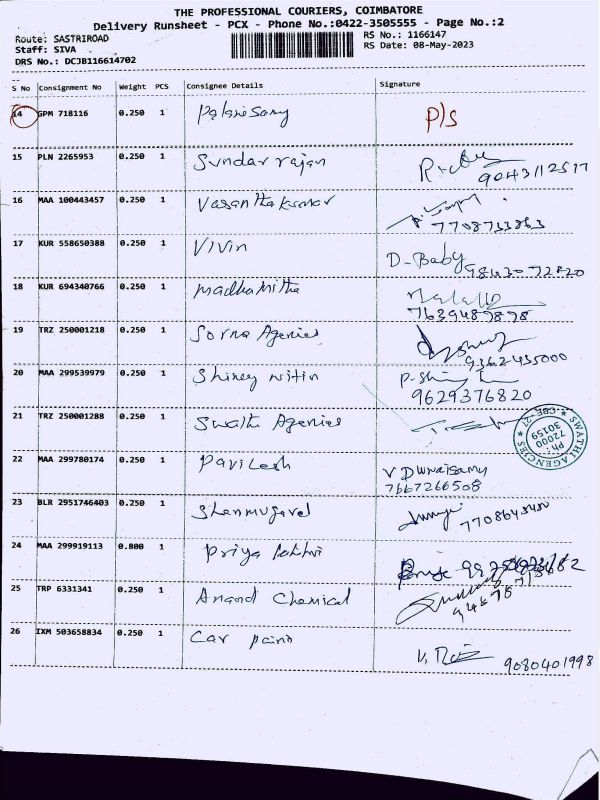 THE PROFESSIONAL COURIERS, COIMBATORE
Delivery Runsheet - PCX - Phone No.:0422-3505555 - Page No.:2
Route: SASTRIROAD
Staff: SIVA
DRS No.: DCJB116614702
RS No.: 1166147
RS Date: 08-May-2023
S No Consignment No Weight PCS Consignee Details Signature
14 GPM 718116 0.250 1 Palanisamy P/s
15 PLN 2265953 0.250 1 Sundar rajan
16 MAA 100443457 0.250 1 Vasanthakumar
7708733863
17 KUR 558650388 0.250 1 Vivin D-Baby
9843072820
18 KUR 694340766 0.250 1 Madhamitha
7639489898
19 TRZ 250001218 0.250 1 Sorna Agenies
9362435000
20 MAA 299539979 0.250 1 Shiney nitin
9629376820
21 TRZ 250001288 0.250 1 Swathi Agenies
SWATHI AGENCIES ★ CBE-27 ★
Ph: 72000 30159
22 MAA 299780174 0.250 1 Pavilesh V Duraisamy
7667266508
23 BLR 2951746403 0.250 1 Shanmugavel
24 MAA 299919113 0.800 1 Priya
25 TRP 6331341 0.250 1 Anand Chemical
26 IXM 503658834 0.250 1 Car paino
9080401998